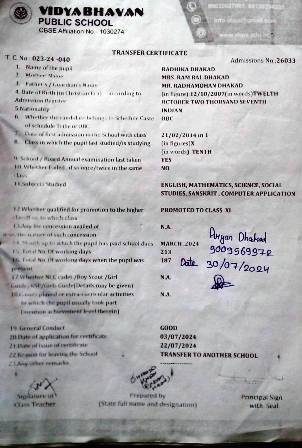 VIDYABHAVAN
PUBLIC SCHOOL
CBSE Affiliation No.: 1030274
TRANSFER CERTIFICATE
T.C No : 023-24 -040 Admissions No.:26033
1. Name of the pupil RADHIKA DHAKAD
2. Mother Name MRS. RAM BAI DHAKAD
MR. RADHAMOHAN DHAKAD
4. Date of Birth according to (in figure)12/10/2007(in words)TWELTH
Admission Register OCTOBER TWO THOUSAND SEVENTH
5. Nationality INDIAN
6. Whether the candidate belongs to Schedule Caste OBC
of schedule Tribe or OBC
7. Date of first admission in the School with class 21/02/2014 in I
8. Class in which the pupil last studied/is studying (in figures)X
(in words) TENTH
9. School / Board Annual examination last taken YES
10. Whether Failed, if so once/twice in the same NO
class
11. Subjects Studied ENGLISH, MATHEMATICS, SCIENCE, SOCIAL
STUDIES, SANSKRIT , COMPUTER APPLICATION
12. Whether qualified for promotion to the higher PROMOTED TO CLASS XI
class
13. Any fee concession availed of N.A.
the nature of such concession
14. Month up to which the pupil has paid school dues MARCH ,2024
15. Total No. Of Working days 213
16. Total No. Of Working days when the pupil was 187
present
17. Whether NCC cadet /Boy Scout /Girl N.A.
Guide (Details may be given)
18. Games played or extra curricular activities N.A.
in which the pupil usually took part
(mention achievement level therein)
Aryan Dhakad
Date 30/07/2024
19. General Conduct GOOD
20. Date of application for certificate 03/07/2024
21. Date of issue of certificate 22/07/2024
22. Reason for leaving the School TRANSFER TO ANOTHER SCHOOL
23. Any other remarks
Signature of Prepared by Principal Sign
Class Teacher (State full name and designation) with Seal